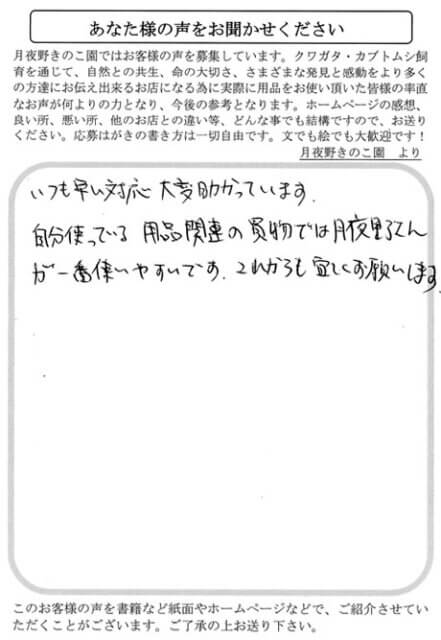 あなた様の声をお聞かせください
月夜野きのこ園ではお客様の声を募集しています。クワガタ・カブトムシ飼
育を通じて、自然との共生、命の大切さ、さまざまな発見と感動をより多く
の方達にお伝え出来るお店になる為に実際に用品をお使い頂いた皆様の率直
なお声が何よりの力となり、今後の参考となります。ホームページの感想、
良い所、悪い所、他のお店との違い等、どんな事でも結構ですので、お送り
ください。応募はがきの書き方は一切自由です。文でも絵でも大歓迎です！
月夜野きのこ園　より
いつも早い対応 大変助かっています.
自分使っている 用品関連の買物では月夜野さん
が一番使いやすいです. これからも宜しくお願いします
このお客様の声を書籍など紙面やホームページなどで、ご紹介させてい
ただくことがございます。ご了承の上お送り下さい。